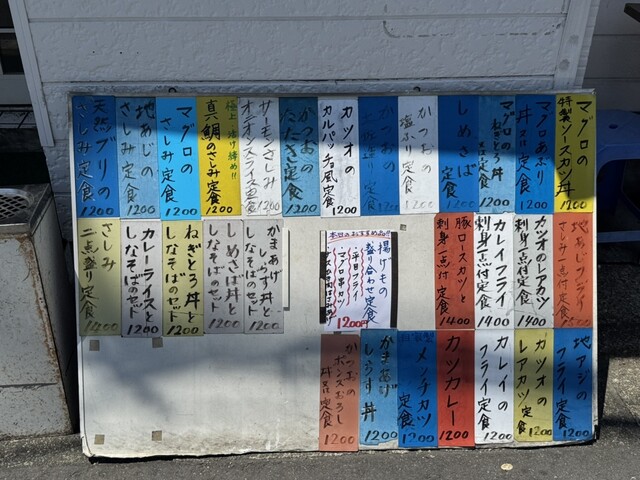 特製
マグロの
ソースカツ丼
1200
マグロあぶり
丼
定食
1200
マグロの
ねぎとろ丼
定食
1200
しめさば
定食
1200
かつおの
塩ぶり定食
1200
かつおの
定食
1200
カツオの
カルパッチョ風定食
1200
かつおの
たたき定食
1200
サーモンさしみ
オニオンスライス
定食
1200
極上 漬け締め!!
真鯛のさしみ定食
1200
マグロの
さしみ定食
1200
地あじの
さしみ定食
1200
天然ブリの
さしみ定食
1200
地あじフライ
さしみ一点付定食
カツオのレアカツ
刺身一点付定食
1400
カレイフライ
刺身一点付定食
1400
豚ロースカツと
刺身一点付定食
1400
本日のおすすめ品!!
揚げもの
盛り合わせ定食
・平日フライ
・マグロ串カツ
1200円
かまあげ
しらす丼と
しなそばのセット
1200
しめさば丼と
しなそばのセット
1200
ねぎとろ丼と
しなそばのセット
1200
カレーライスと
しなそばのセット
1200
さしみ
二点盛り定食
1400
地アジの
フライ定食
1200
カツオの
レアカツ定食
1200
カレイの
フライ定食
1200
カツカレー
1200
メンチカツ
定食
1200
かまあげ
しらす丼
1200
かつおの
ポンズおろし
丼
定食
1200